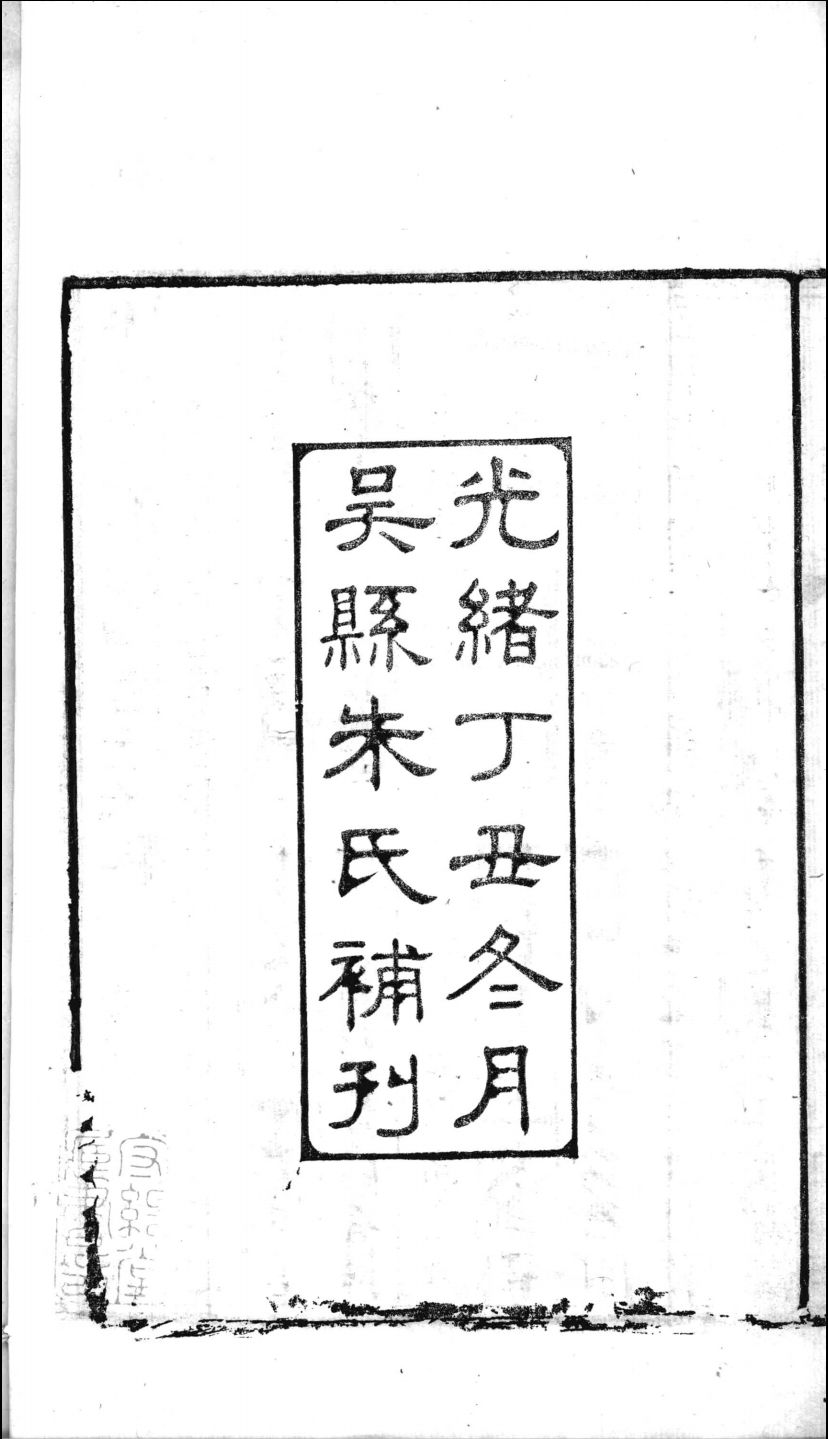 光緒丁丑冬月
吴縣朱氏補刊